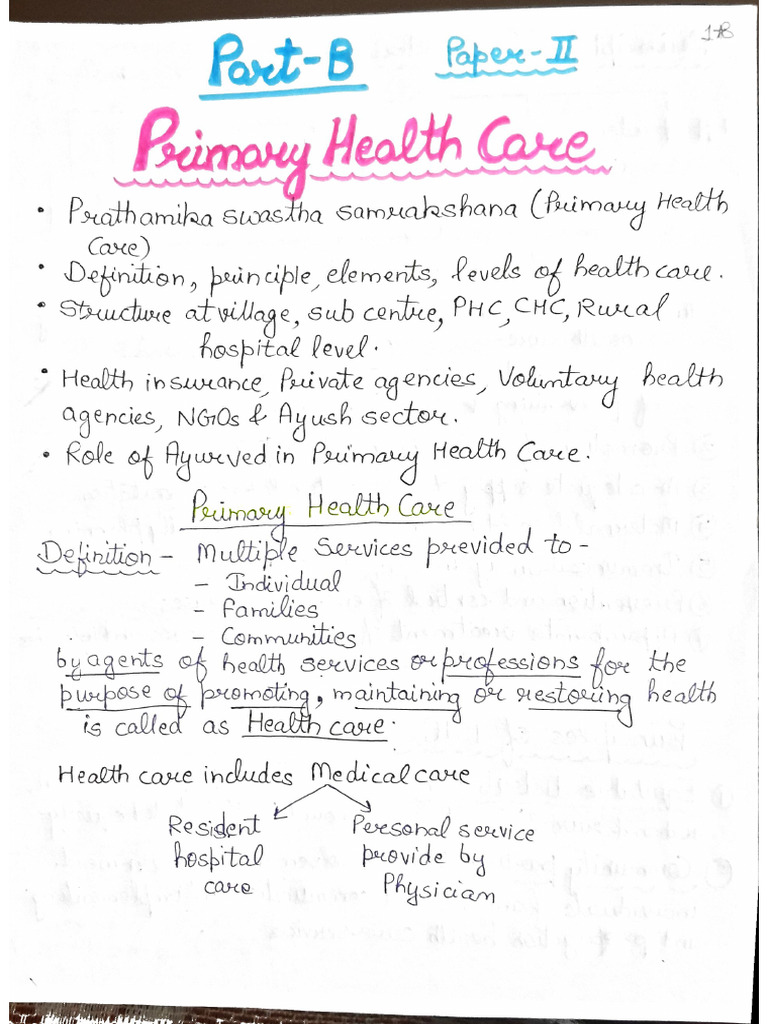 Part-B Paper-II
Primary Health Care
• Prathamika swastha samrakshana (Primary Health
Care)
• Definition, principle, elements, levels of health care.
• Structure at village, sub centre, PHC, CHC, Rural
hospital level.
• Health insurance, Private agencies, Voluntary health
agencies, NGOs & Ayush sector.
• Role of Ayurved in Primary Health Care.
Primary Health Care
Definition - Multiple Services previded to -
- Individual
- Families
- Communities
by agents of health services or professions for the
purpose of promoting, maintaining or restoring health
is called as Health care.
Health care includes Medical care
Resident Personal service
hospital provide by
care Physician